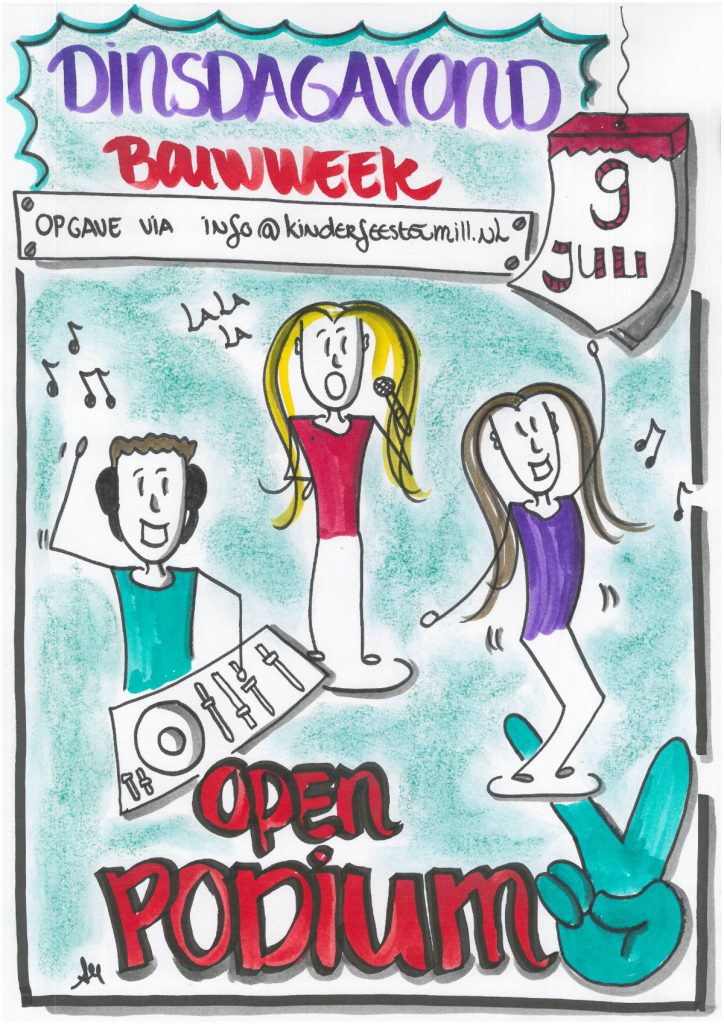 DINSDAGAVOND
BOUWWEEK
OPGAVE VIA info@kinderfeestenmill.nl
9
JULI
LA LA
LA
OPEN
PODIUM